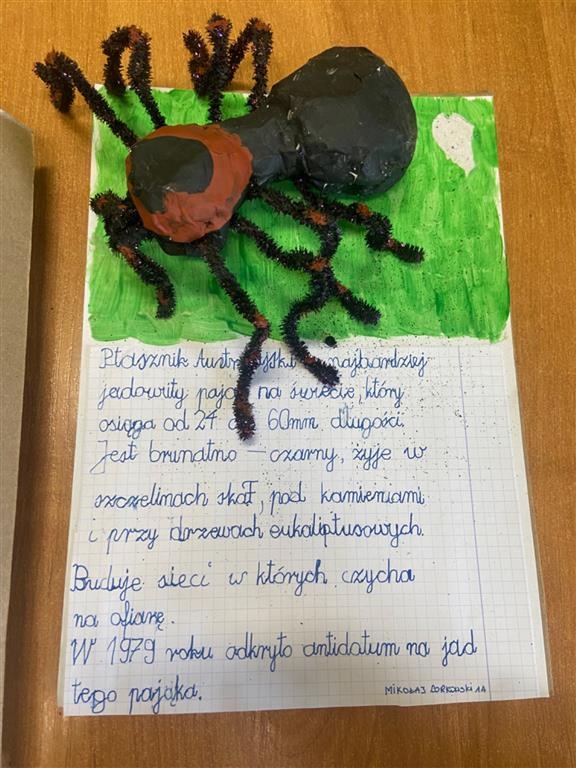 Ptasznik Australijski najbardziej
jadowity pająk na świecie, który
osiąga od 24 do 60mm długości.
Jest brunatno - czarny, żyje w
szczelinach skał, pod kamieniami
i przy drzewach eukaliptusowych.
Buduje sieci w których czycha
na ofiarę.
W 1979 roku odkryto antidatum na jad
tego pająka.
MIKOŁAJ BORKOWSKI 1A